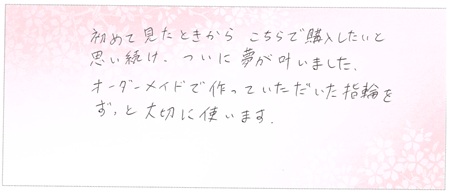 初めて見たときから こちらで購入したいと
思い続け、ついに夢が叶いました。
オーダーメイドで作っていただいた指輪を
ずっと大切に使います。